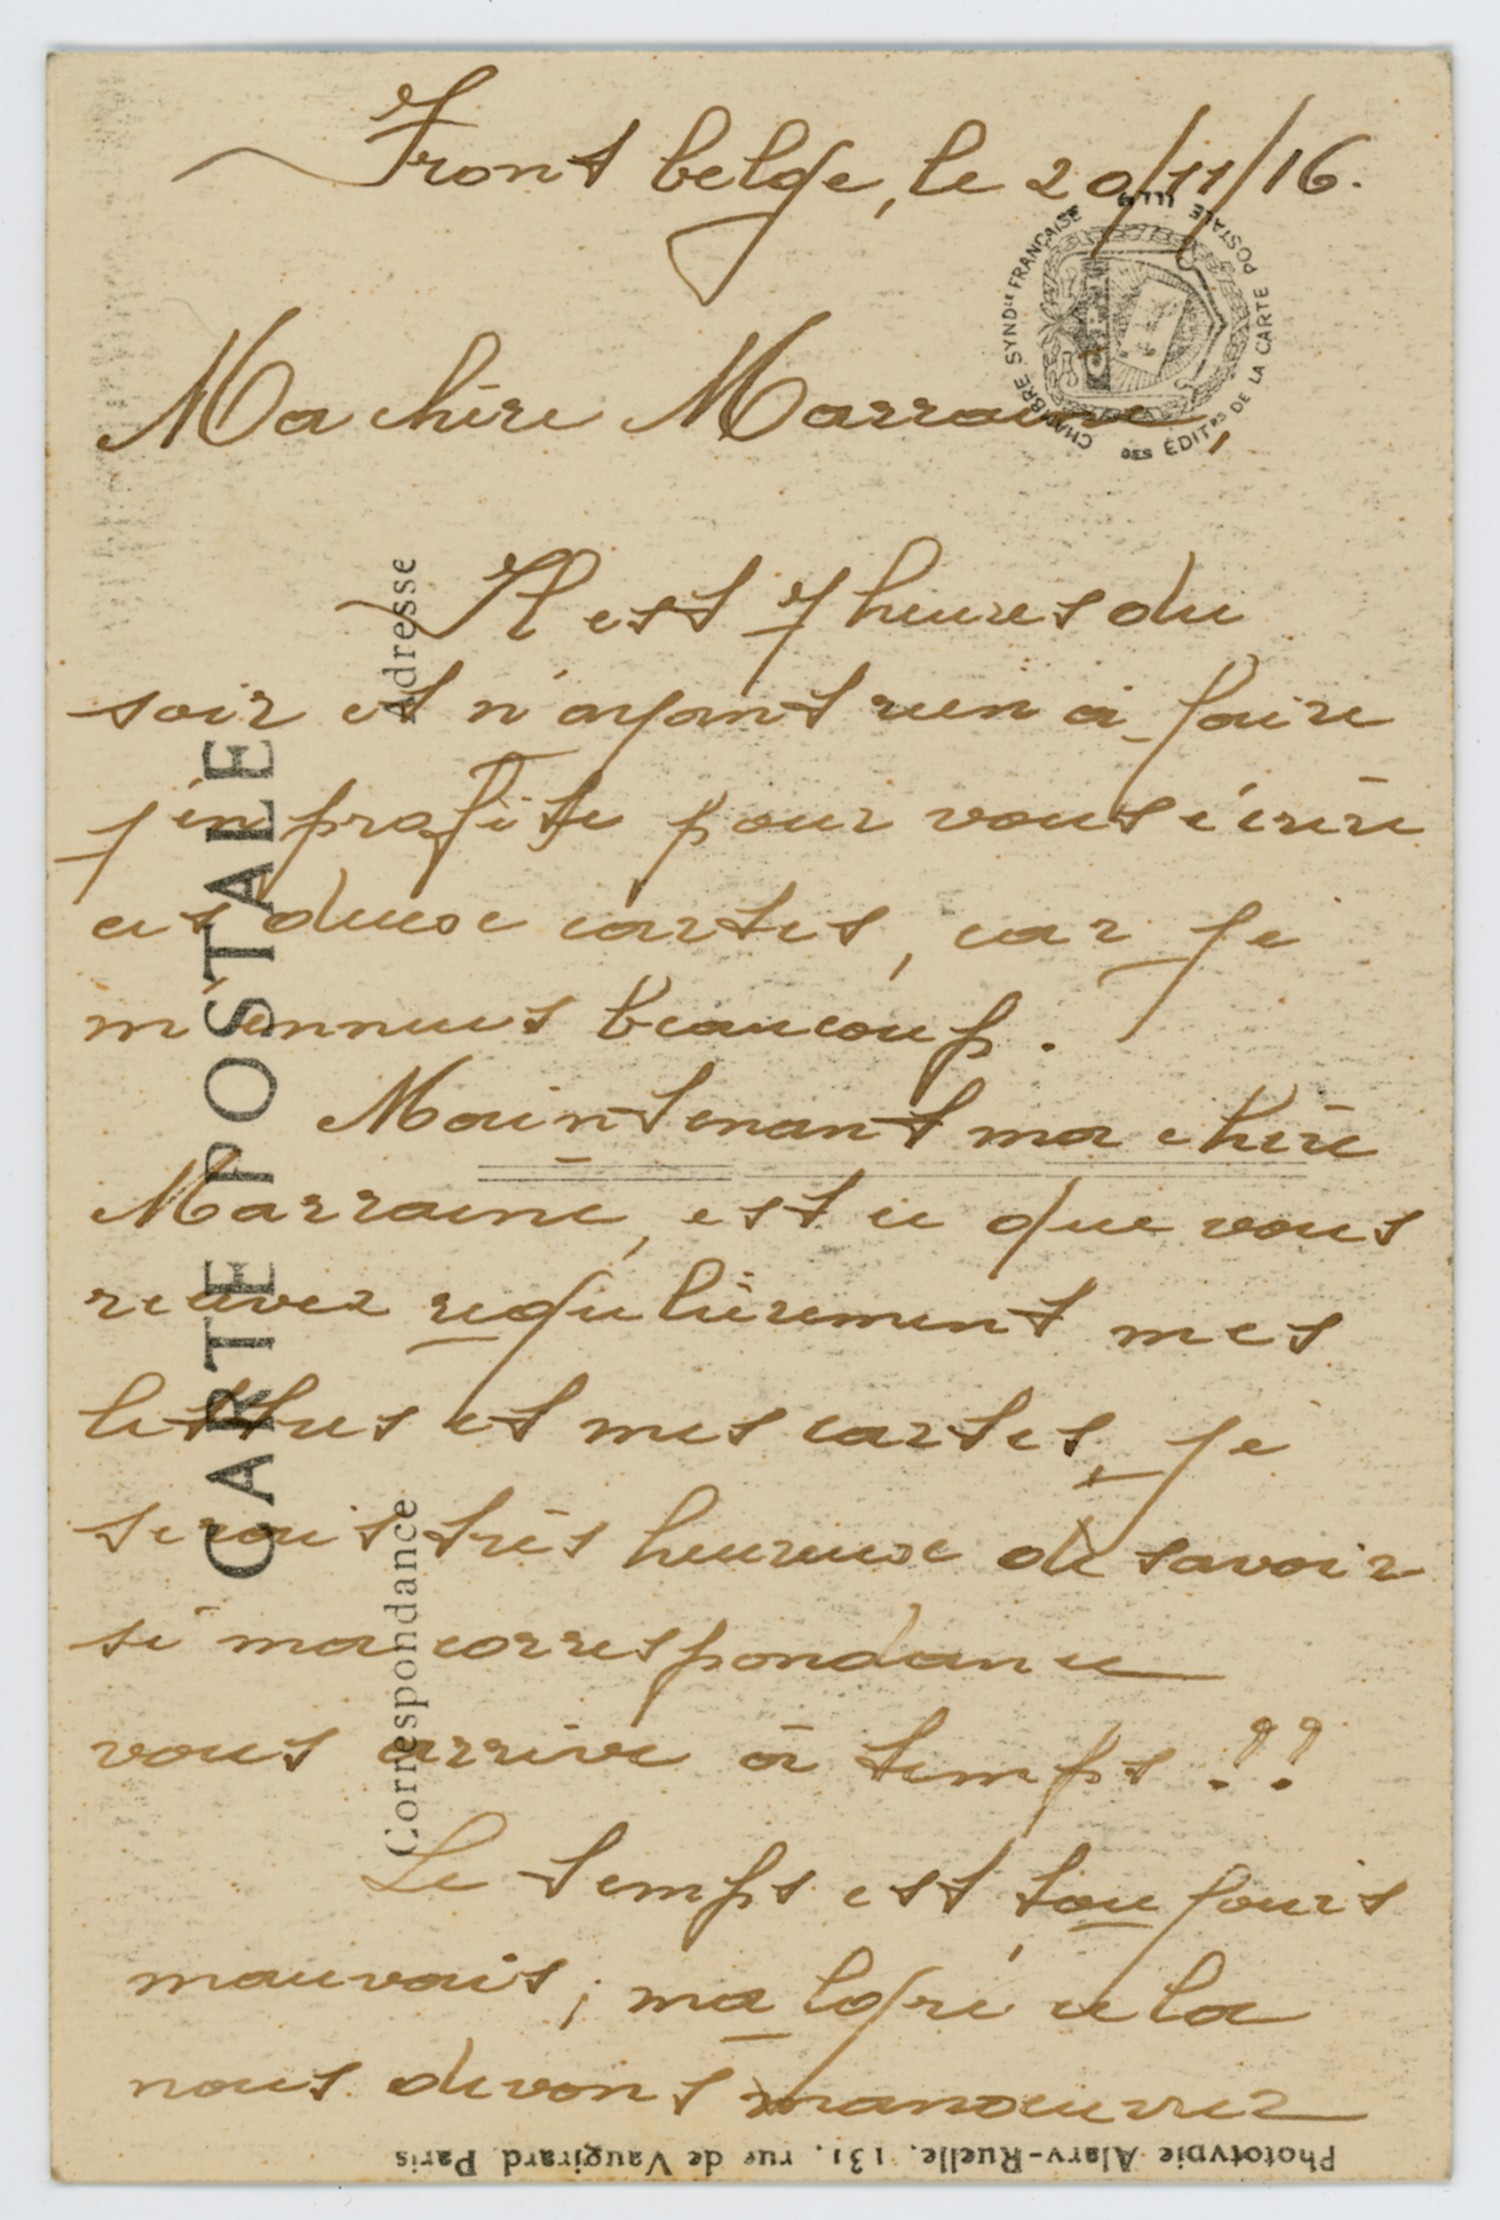 Front belge, le 20/11/16.
Ma chère Marraine,
Il est 7 heures du
soir et n'ayant rien à faire
j'en profite pour vous écrire
ces deux cartes, car je
m'ennuis beaucoup.
Maintenant ma chère
Marraine, est ce que vous
recevez regulièrement mes
lettres et mes cartes, je
serais très heureux de savoir
si ma correspondance
vous arrive à temps ??
Le temps est toujours
mauvais ; malgré cela
nous devons manoeuvrer
CARTE POSTALE
Adresse
Correspondance
CHAMBRE SYND^LE FRANÇAISE
DES ÉDIT^RS DE LA CARTE POSTALE ILL^EE
Phototypie Alary-Ruelle, 131, rue de Vaugirard Paris